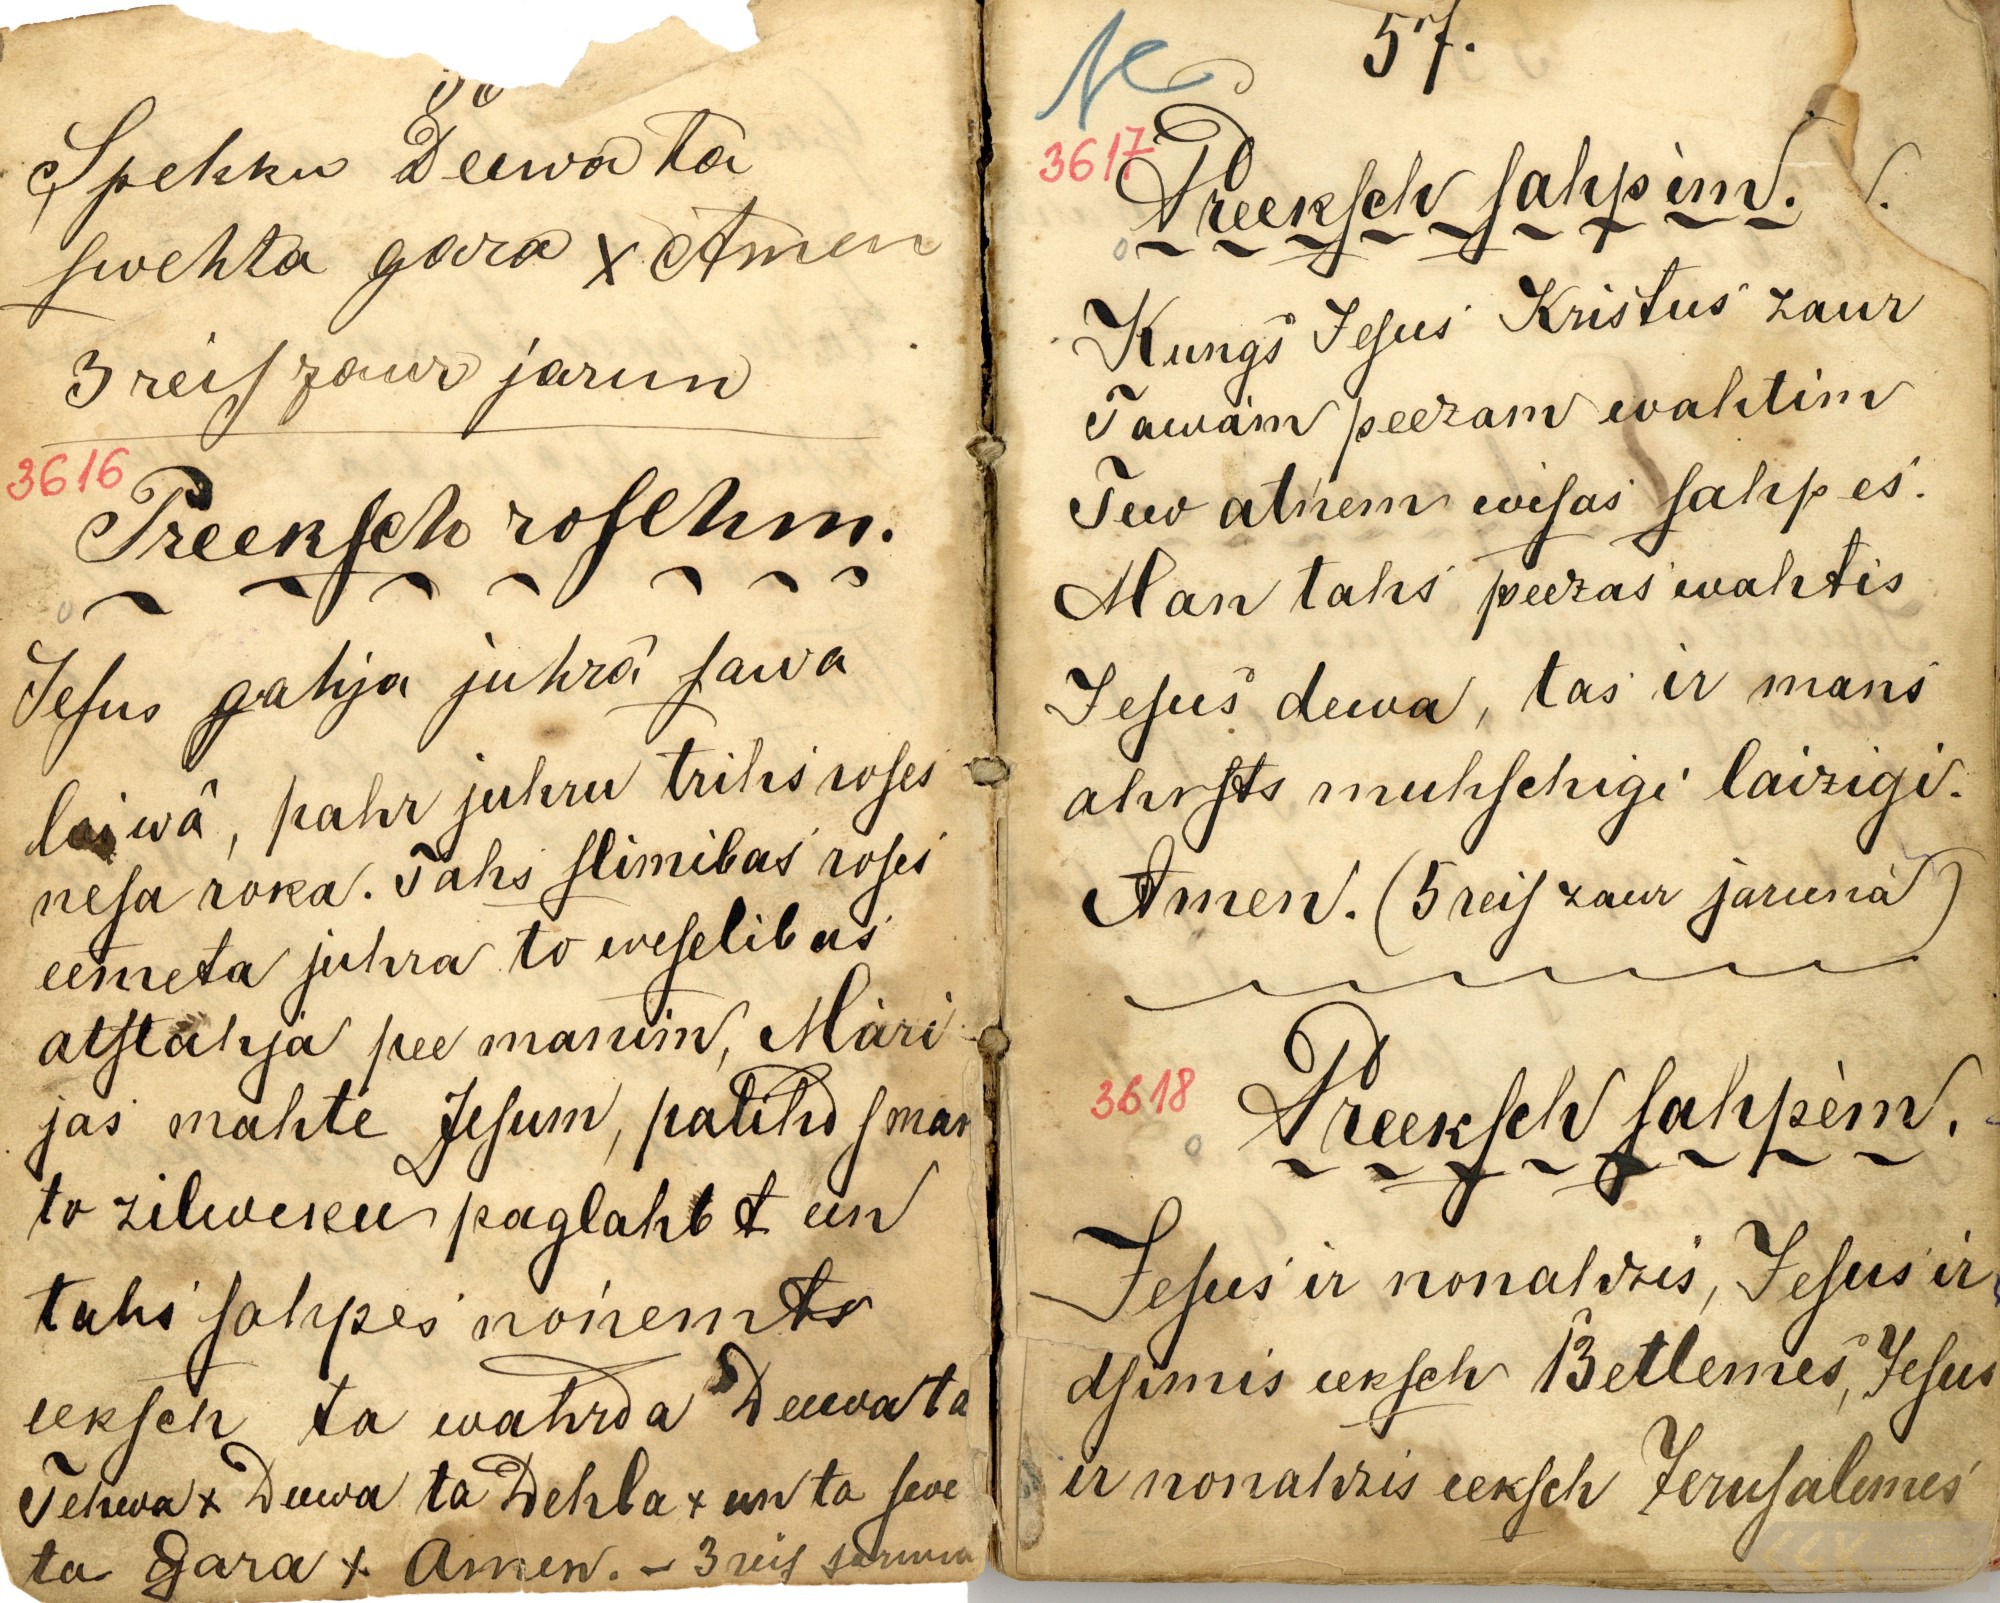 Spehku Deewa ta
swehta gara x Amen
3 reis zaur jarun
3616
Preeksch rosehm.
Jesus gahja juhrâ sawa
laiwâ, pahr juhru trihs roses
nesa roka. Tahs slimibas roses
eemeta juhra to weselibas
atstahja pee manim, Mari
jas mahte Jesum, palihd sman
to zilweku paglahbt un
tahs sahpes noņemts
eeksch ta wahrda Deewa ta
Tehwa x Deewa ta Dehla x un ta swe
ta Gara x. Amen. – 3 reis
57.
3617
Preeksch sahpèm.
Kungs Jesus Kristus zaur
Tawâm peezam wahtim
Tuw atņem wisas sahpes.
Man tahs peezas wahtis
Jesus dewa, tas ir mans
ahrsts muhschigi laizigi.
Amen. (5 reis zaur jarunâ)
3618
Preeksch sahpèm.
Jesus ir nonahzis, Jesus ir
dsimis eeksch Betlemes, Jesus
ir nonahzis eeksch Jerusalemes